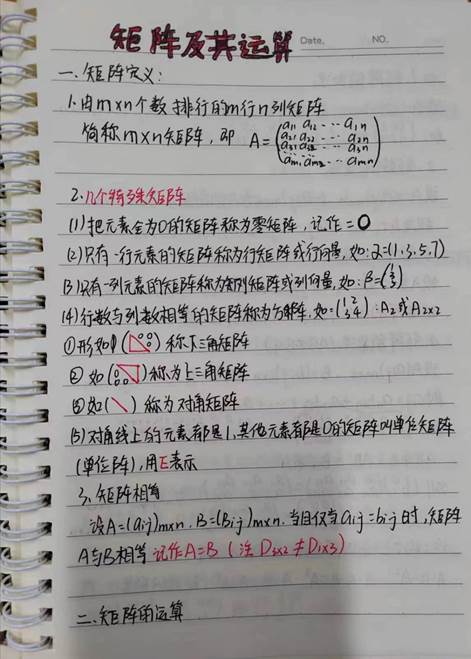 矩阵及其运算
Date. NO.
一、矩阵定义:
1.由m×n个数排行的m行n列矩阵
简称m×n矩阵,即 A=(a11 a12 … a1n
a21 a22 … a2n
a31 a32 … a3n
… … …
am1 am2 … amn)
2.几个特殊矩阵
(1)把元素全为0的矩阵称为零矩阵,记作=O
(2)只有一行元素的矩阵称为行矩阵或行向量,如:α=(1.3.5.7)
(3)只有一列元素的矩阵称为列矩阵或列向量,如:β=
(4)行数与列数相等的矩阵称为方阵,如=(1 2
3 4):A2或A2×2
①形如 称下三角矩阵
②如 称为上三角矩阵
如(\)称为对角矩阵
(5)对角线上的元素都是1,其他元素都是0的矩阵叫单位矩阵
(单位阵),用E表示
3、矩阵相等
设A=(aij)m×n.B=(Bij)m×n.当且仅当aij=bij时,矩阵
A与B相等 记作A=B(注 D3×2≠D1×3)
二、矩阵的运算